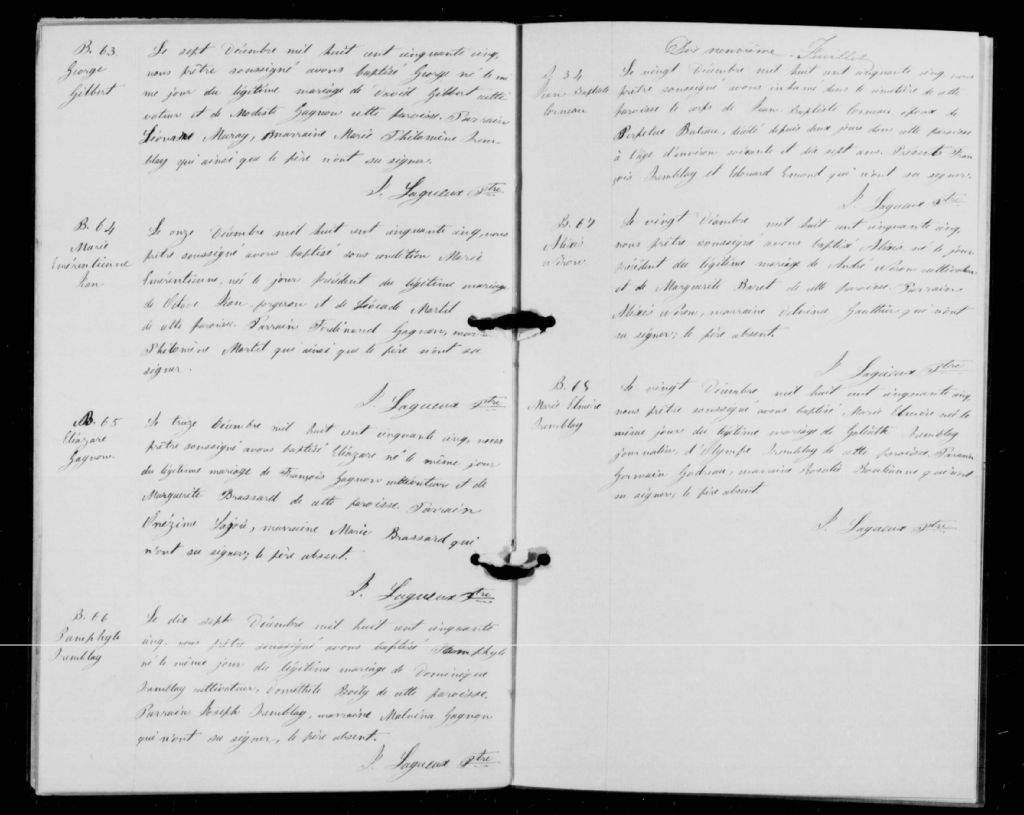 B. 63
George
Gilbert
Le sept Décembre mil huit cent cinquante cinq,
nous prêtre soussigné avons baptisé George né le mê
me jour du légitime mariage de David Gilbert culti
vateur et de Modeste Gagnon cette paroisse. Parrain
Léonard Muray, marraine Marie Philomène Trem-
blay qui ainsi que le père n'ont su signer.
J. Lagueux Ptre
B. 64
Marie
Emérentienne
Jean
Le onze Décembre mil huit cent cinquante cinq, nous
prêtre soussigné avons baptisé sous condition Marie
Emérentienne, née le jour précédent du légitime mariage
de Octave Jean forgeron et de Léocade Martel
de cette paroisse. Parrain Ferdinand Gagnon, marr
Philomène Martel qui ainsi que le père n'ont su
signer.
J. Lagueux Ptre
B. 65
Eléazare
Gagnon
Le treize Décembre mil huit cent cinquante cinq, nous
prêtre soussigné avons baptisé Eléazare né le même jour
du légitime mariage de François Gagnon cultivateur et de
Marguerite Brassard de cette paroisse. Parrain
Onézime Lajoie, marraine Marie Brassard qui
n'ont su signer; le père absent.
J. Lagueux Ptre
B. 66
Pamphyle
Tremblay
Le dix sept Décembre mil huit cent cinquante
cinq, nous prêtre soussigné avons baptisé Pamphyle
né le même jour du légitime mariage de Dominique
Tremblay cultivateur, Domithile Boily de cette paroisse.
Parrain Joseph Tremblay, marraine Malvina Gagnon
qui n'ont su signer, le père absent.
J. Lagueux Ptre
Dix neuvième Feuillet
S. 34
Jean Baptiste
Corneau
Le vingt Décembre mil huit cent cinquante cinq, nous
prêtre soussigné avons inhumé dans le cimetière de cette
paroisse le corps de Jean Baptiste Corneau, époux de
Perpétue Buteau, décédé depuis deux jours dans cette paroisse
à l'âge d'environ soixante et dix sept ans. Présents Fran
çois Tremblay et Edouard Emond qui n'ont su signer.
J. Lagueux Ptre
B. 67
Alexis
Néron
Le vingt Décembre mil huit cent cinquante cinq,
nous prêtre soussigné avons baptisé Alexis né le jour
précédent du légitime mariage de André Néron cultivateur
et de Marguerite Baret de cette paroisse. Parrain
Alexis Néron, marraine Gauthier qui n'ont
su signer; le père absent.
J. Lagueux Ptre
B. 68
Marie Elmire
Tremblay
Le vingt Décembre mil huit cent cinquante cinq,
nous prêtre soussigné avons baptisé Marie Elmire née le
même jour du légitime mariage de Goliath Tremblay
journalier, d'Olympe Tremblay de cette paroisse. Parrain
Germain Godreau, marraine Rosalie Boulianne qui n'ont
su signer; le père absent.
J. Lagueux Ptre